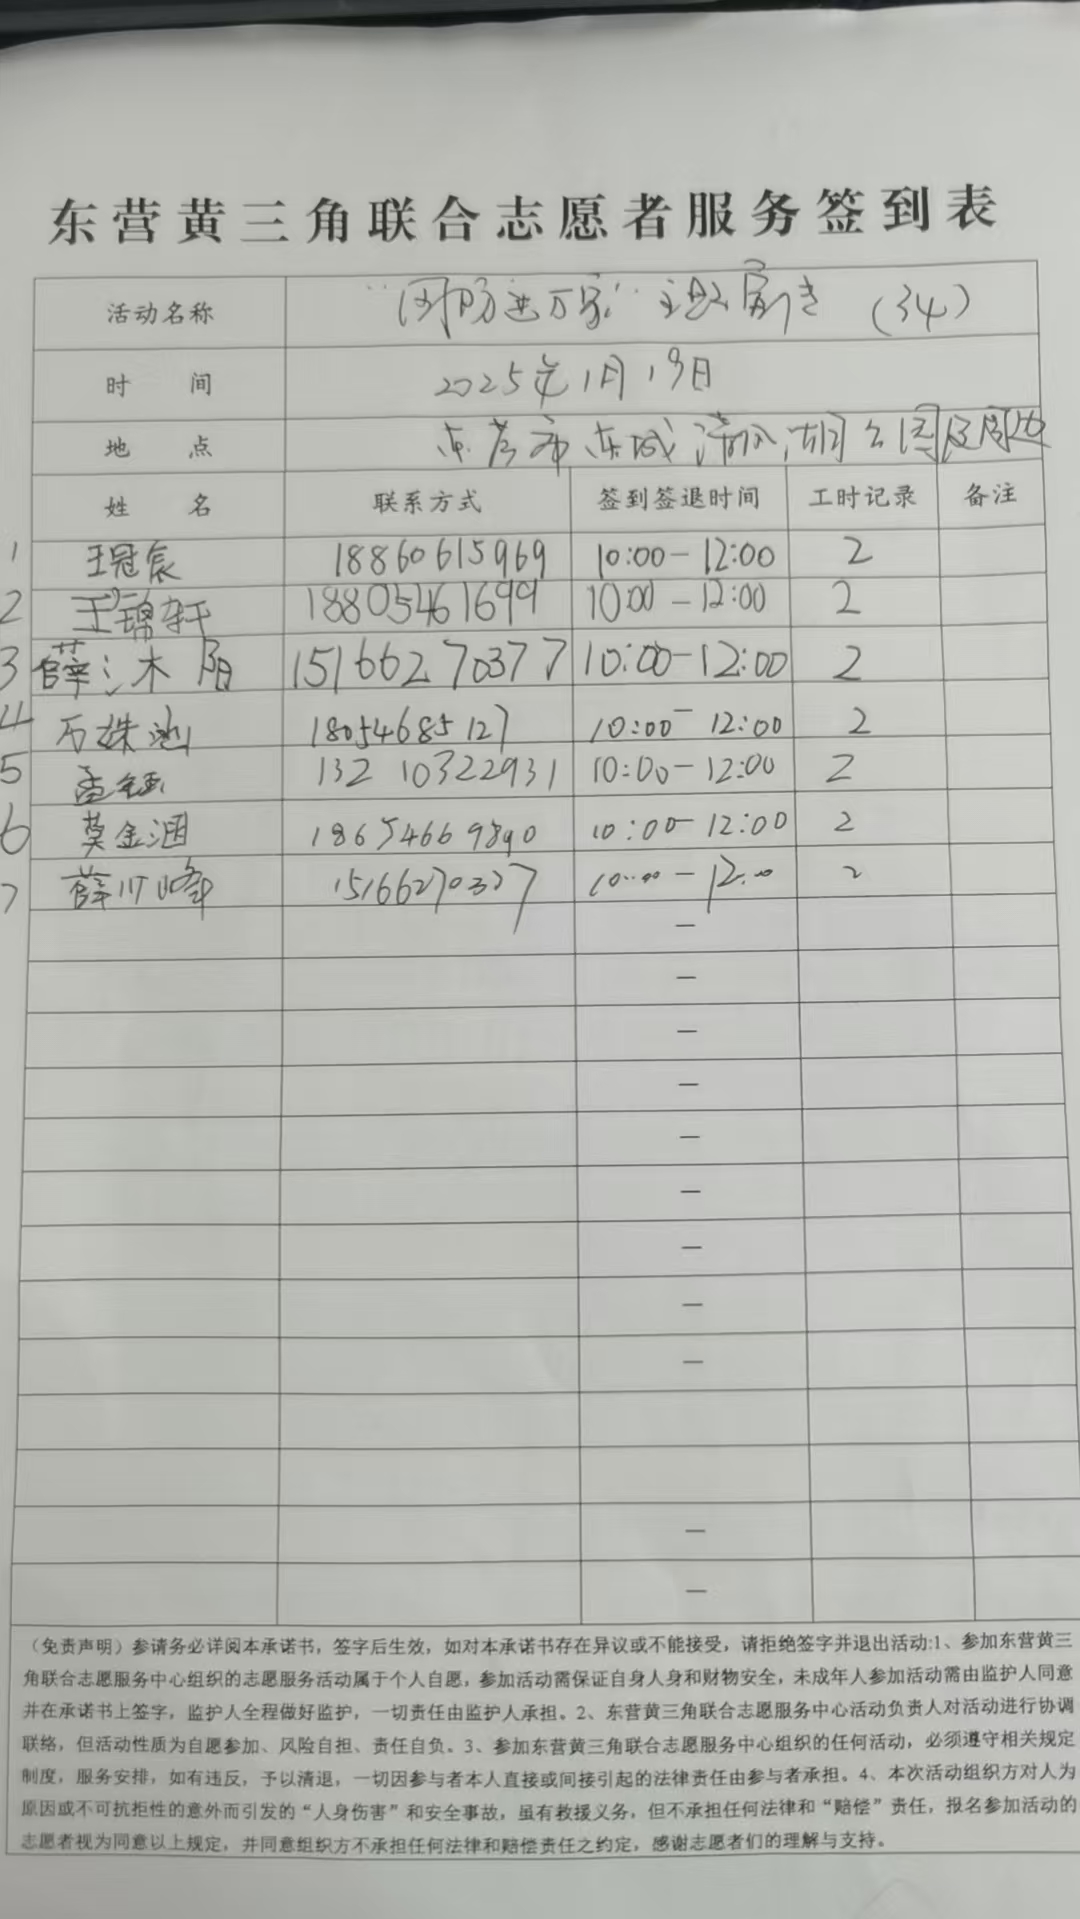 东营黄三角联合志愿者服务签到表
活动名称 “国防进万家”主题宣传 (34)
时 间 2025年1月19日
地 点 东营市东城清风湖公园及周边
姓 名 联系方式 签到签退时间 工时记录 备注
1 王冠宸 18860615969 10:00-12:00 2
2 王锦轩 18805461699 10:00-12:00 2
3 薛沐阳 15166270377 10:00-12:00 2
4 万姝 18054685127 10:00-12:00 2
5 13210322931 10:00-12:00 2
6 莫金涵 18654669890 10:00-12:00 2
7 薛川峰 15166270377 10:00-12:00 2
—
—
—
—
—
—
—
—
—
—
—
(免责声明)参请务必详阅本承诺书，签字后生效，如对本承诺书存在异议或不能接受，请拒绝签字并退出活动:1、参加东营黄三
角联合志愿服务中心组织的志愿服务活动属于个人自愿，参加活动需保证自身人身和财物安全，未成年人参加活动需由监护人同意
并在承诺书上签字，监护人全程做好监护，一切责任由监护人承担。2、东营黄三角联合志愿服务中心活动负责人对活动进行协调
联络，但活动性质为自愿参加、风险自担、责任自负。3、参加东营黄三角联合志愿服务中心组织的任何活动，必须遵守相关规定
制度，服务安排，如有违反，予以清退，一切因参与者本人直接或间接引起的法律责任由参与者承担。4、本次活动组织方对人为
原因或不可抗拒性的意外而引发的“人身伤害”和安全事故，虽有救援义务，但不承担任何法律和“赔偿”责任，报名参加活动的
志愿者视为同意以上规定，并同意组织方不承担任何法律和赔偿责任之约定，感谢志愿者们的理解与支持。